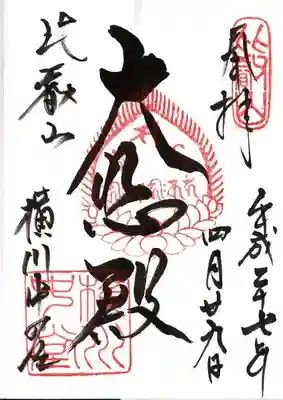 奉拝
平成二十七年
四月廿九日
大悲殿
比叡山
横川中堂